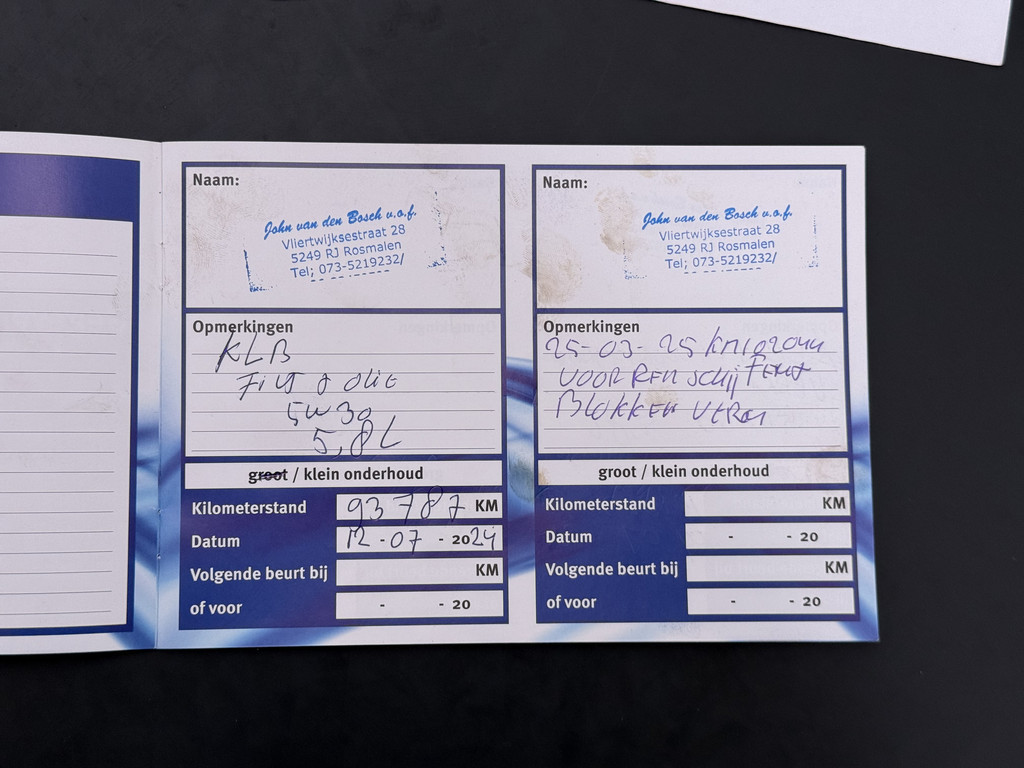 Naam:
John van den Bosch v.o.f.
Vliertwijksestraat 28
5249 RJ Rosmalen
Tel; 073-5219232/
Opmerkingen
KLB
Filt & olie
5W30
5,8L
groot / klein onderhoud
Kilometerstand 93787 KM
Datum 12 - 07 - 2024
Volgende beurt bij KM
of voor - - 20
Naam:
John van den Bosch v.o.f.
Vliertwijksestraat 28
5249 RJ Rosmalen
Tel; 073-5219232/
Opmerkingen
25-03-25
VOOR REM SCHIJF
BLOKKEN
groot / klein onderhoud
Kilometerstand KM
Datum - - 20
Volgende beurt bij KM
of voor - - 20